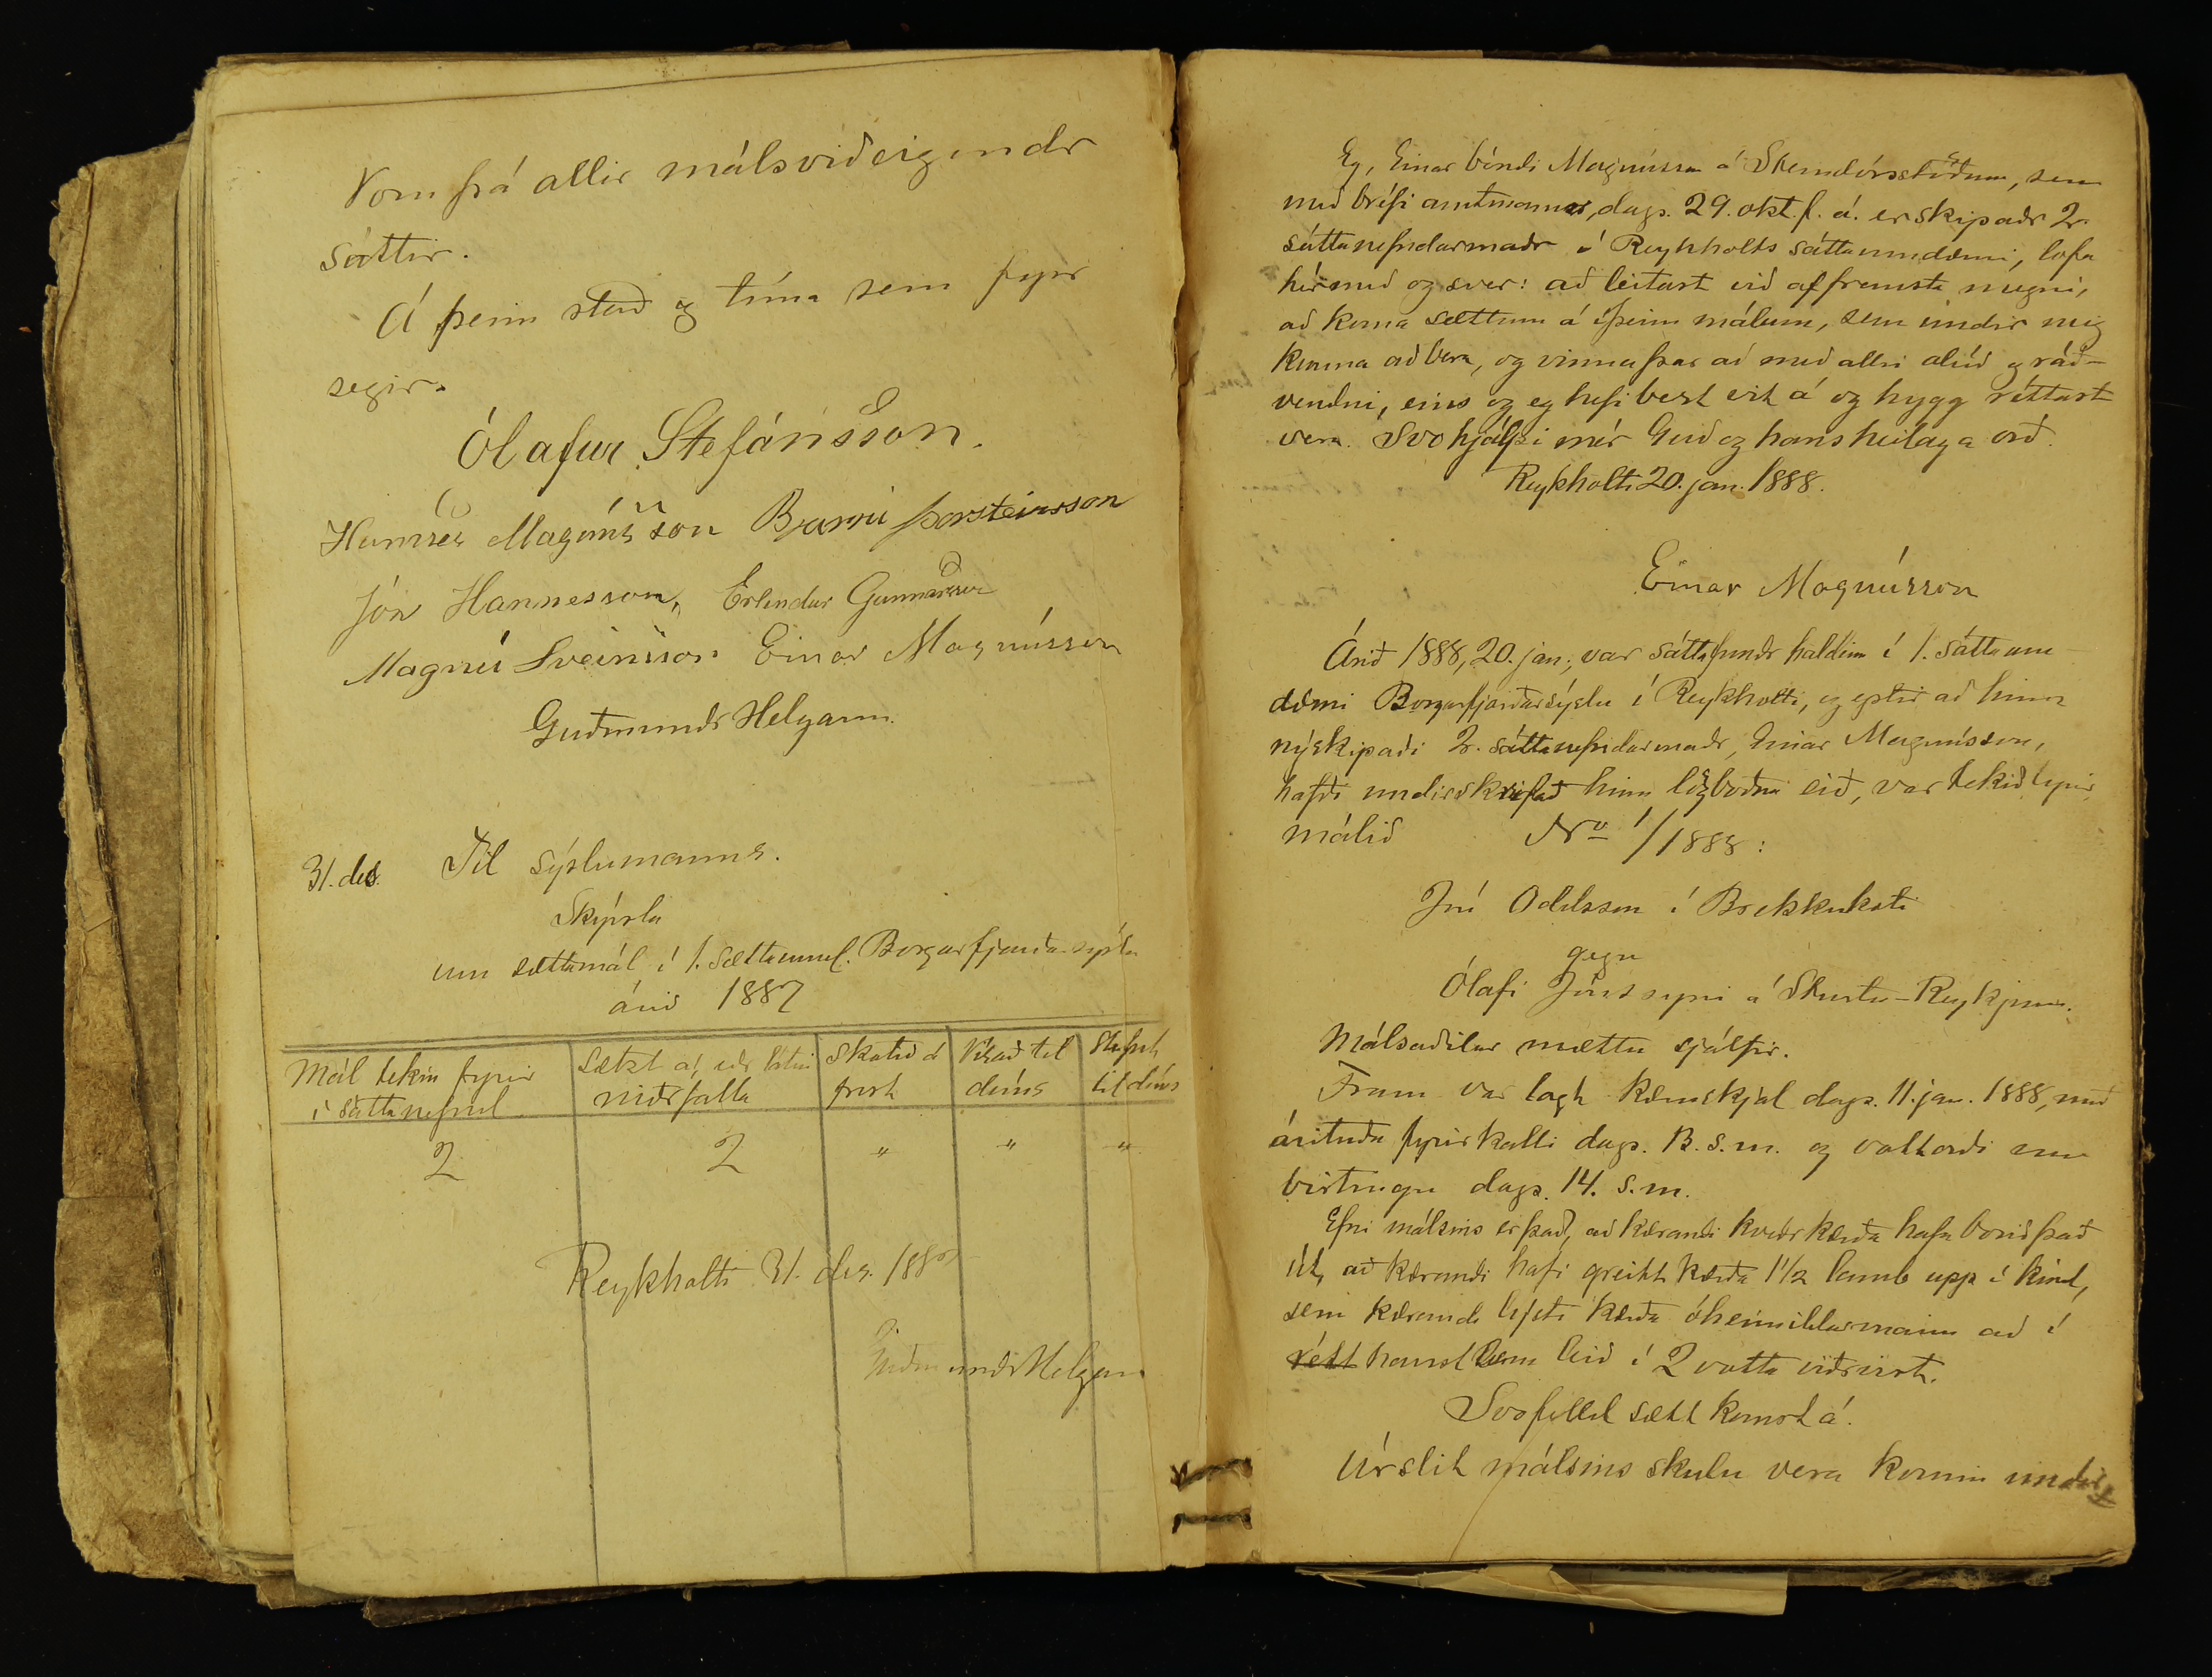 Voru þá allir málsviðeigendr
sáttir.
Á þeim stað og tíma sem fyr
segir.
Ólafur Stefánsson.
Hannes Magnússon Bjarni Þorsteinsson
Jón Hannesson, Erlendur Gunnarsson
Magnús Sveinsson Einar Magnússon
Guðmundr Helgason.
31. des. Til sýslumanns.
Skýrsla
um sættamál í 1. sættaumd. Borgarfjarðarsýslu
árið 1887
Mál tekin fyrir
í sáttanefnd
Sætzt á, eðr látin
niðrfalla
Skotið á
frest
Vísað til
dóms
Stefnt
til dóms
2 2 " " "
Reykholti 31. des. 1887
Guðmundr Helgason
Eg, Einar bóndi Magnússon á Steindórsstöðum, sem
með bréfi amtmanns, dags. 29. okt. f. á. er skipaðr 2.
sáttanefndarmaðr í Reykholts sáttaumdæmi, lofa
hérmeð og sver: að leitast við af fremsta megni,
að koma sættum á í þeim málum, sem undir mig
kunna að bera, og vinna þar að með allri alúð og ráð-
vendni, eins og eg hefi best vit á og hygg réttast
vera. Svo hjálpi mér Guð og hans heilaga orð.
Reykholti 20. jan. 1888.
Einar Magnússon
Árið 1888, 20. jan., var sáttafundr haldinn í 1. sáttaum-
dæmi Borgarfjarðarsýslu í Reykholti, og eptir að hinn
nýskipaði 2. sáttanefndarmaðr, Einar Magnússon,
hafði undirskrifað hinn lögboðna eið, var tekið fyrir
málið No 1/1888:
Jón Oddsson í Brekkukoti
gegn
Ólafi Jónssyni á Sturlu-Reykjum.
Málsaðilar mættu sjálfir.
Fram var lagt kæruskjal dags. 11. jan. 1888, með
árituðu fyrirkalli dags. 13. s. m. og vottorði um
birtingu dags. 14. s. m.
Efni málsins er það, að kærandi kveðr kærða hafa borið það
út, að kærandi hafi greitt kærða 1 1/2 lamb upp í kind,
sem kærandi lýsti kærða óheimildarmann að í
rétt haust sem leið í 2 votta viðrvist.
Svofelld sætt komst á.
Úrslit málsins skulu vera komin undir